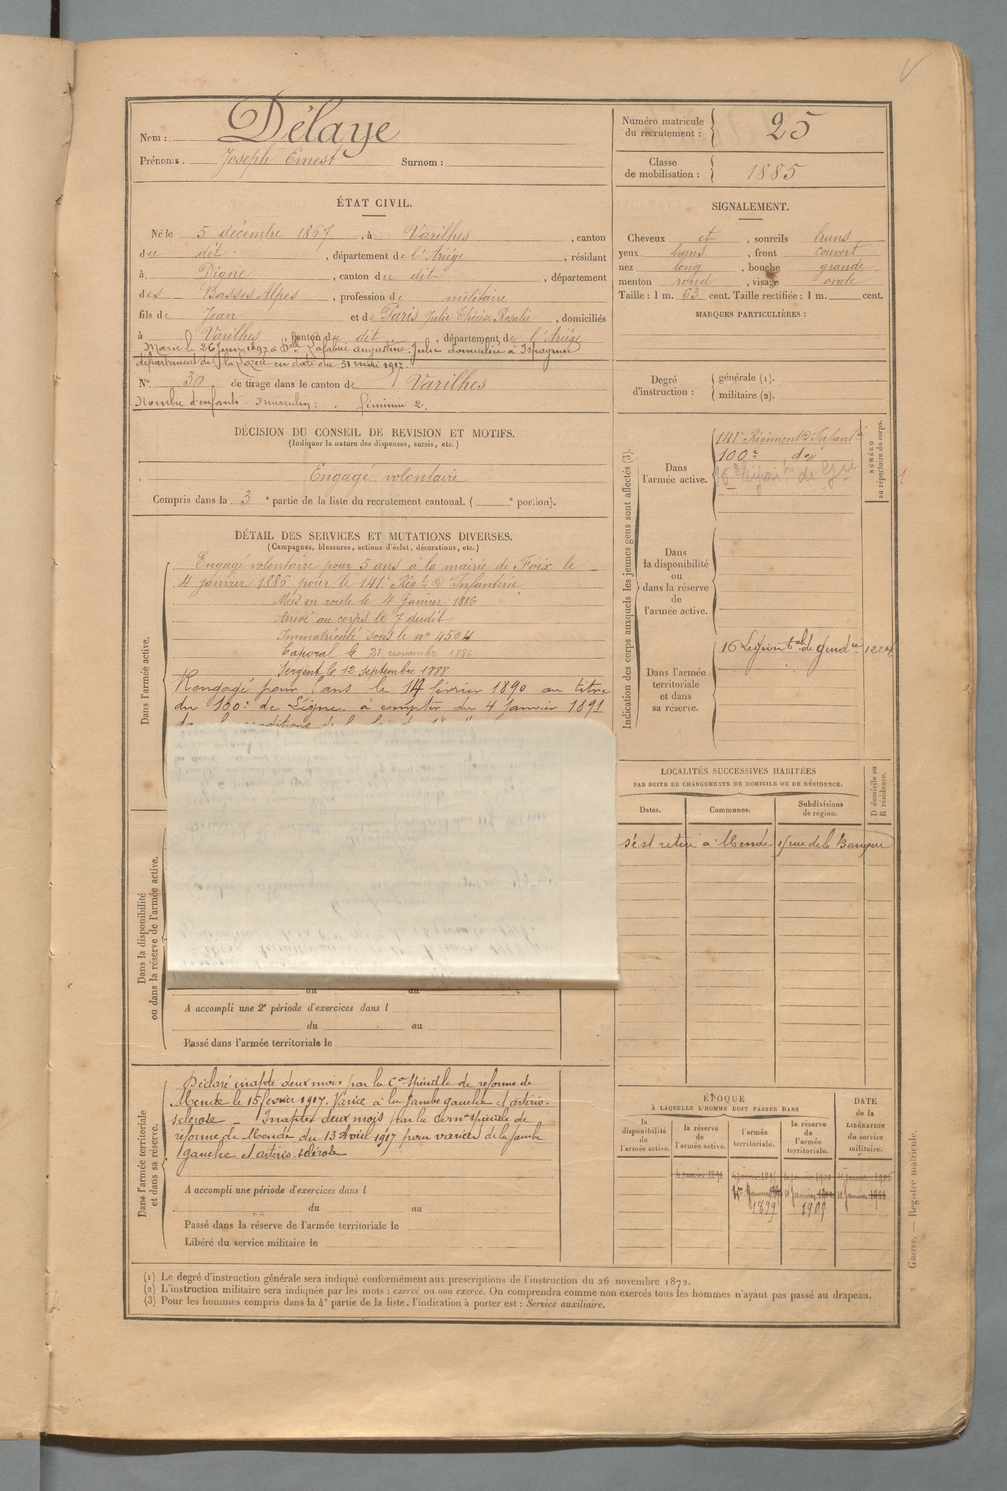 Nom : Délaye
Prénoms : Joseph Ernest Surnom :
Numéro matricule
du recrutement : 25
Classe
de mobilisation : 1885
ÉTAT CIVIL.
Né le 5 décembre 1867, à Varilhes, canton
du dit, département de l'Ariège, résidant
à Digne, canton du dit, département
des Basses Alpes, profession de militaire
fils de Jean et de Paris Julie Thérèse Rosalie, domiciliés
à Varilhes, canton du dit, département de l'Ariège
Marié le 26 Juin 1897 à Dlle Lafabrie Augustine Julie domiciliée à Ispagnac
département de la Lozère en date du 31 mai 1917.
N° 30 de tirage dans le canton de Varilhes
Nombre d'enfants. Masculin : . féminin 2.
SIGNALEMENT.
Cheveux et, sourcils bruns
yeux bruns, front couvert
nez long, bouche grande
menton rond, visage ovale
Taille : 1 m. 63 cent. Taille rectifiée : 1 m. cent.
MARQUES PARTICULIÈRES :
Degré
d'instruction :
générale (1).
militaire (2).
DÉCISION DU CONSEIL DE REVISION ET MOTIFS.
(Indiquer la nature des dispenses, sursis, etc.)
Engagé volontaire
Compris dans la 3e partie de la liste du recrutement cantonal. ( e portion).
DÉTAIL DES SERVICES ET MUTATIONS DIVERSES.
(Campagnes, blessures, actions d'éclat, décorations, etc.)
Dans l'armée active.
Engagé volontaire pour 5 ans à la mairie de Foix le
4 janvier 1886 pour le 141e Régt d'Infanterie
Mis en route le 4 Janvier 1886
Arrivé au corps le 7 dudit
Immatriculé sous le n° 4504
Caporal le 21 novembre 1886
Sergent le 12 septembre 1888
Rengagé pour ans le 14 février 1890 au titre
du 100e de Ligne à compter du 4 Janvier 1891
Indication des corps auxquels les jeunes gens sont affectés (3).
NUMÉRO
au répertoire du corps.
Dans
l'armée active.
141e Régiment d'Infantie
100e do
16e Légion de Gie
Dans
la disponibilité
ou
dans la réserve
de
l'armée active.
Dans l'armée
territoriale
et dans
sa réserve.
16 Légion tale de gendie
LOCALITÉS SUCCESSIVES HABITÉES
PAR SUITE DE CHANGEMENTS DE DOMICILE OU DE RÉSIDENCE.
Dates.
Communes.
Subdivisions
de région.
D domicile ou
R résidence.
S'est retiré à Mende, rue de la Banque
Dans la disponibilité
ou dans la réserve de l'armée active.
du au
A accompli une 2e période d'exercices dans l
du au
Passé dans l'armée territoriale le
Dans l'armée territoriale
et dans sa réserve.
Déclaré inapte deux mois par la Con Spéciale de réforme de
Mende le 15 février 1917. Varice à la jambe gauche et artério-
sclérose – Inapte deux mois par la Comon spéciale de
réforme de Mende du 13 Avril 1917 pour varices de la jambe
gauche et artério-sclérose
A accompli une période d'exercices dans l
du au
Passé dans la réserve de l'armée territoriale le
Libéré du service militaire le
ÉPOQUE
À LAQUELLE L'HOMME DOIT PASSER DANS
la
disponibilité
de
l'armée active.
la réserve
de
l'armée active.
l'armée
territoriale.
la réserve
de
l'armée
territoriale.
DATE
de la
LIBÉRATION
du service
militaire.
4 janvier 1891
1899
1905
Guerre. — Registre matricule.
(1) Le degré d'instruction générale sera indiqué conformément aux prescriptions de l'instruction du 26 novembre 1872.
(2) L'instruction militaire sera indiquée par les mots : exercé ou non exercé. On comprendra comme non exercés tous les hommes n'ayant pas passé au drapeau.
(3) Pour les hommes compris dans la 4e partie de la liste, l'indication à porter est : Service auxiliaire.